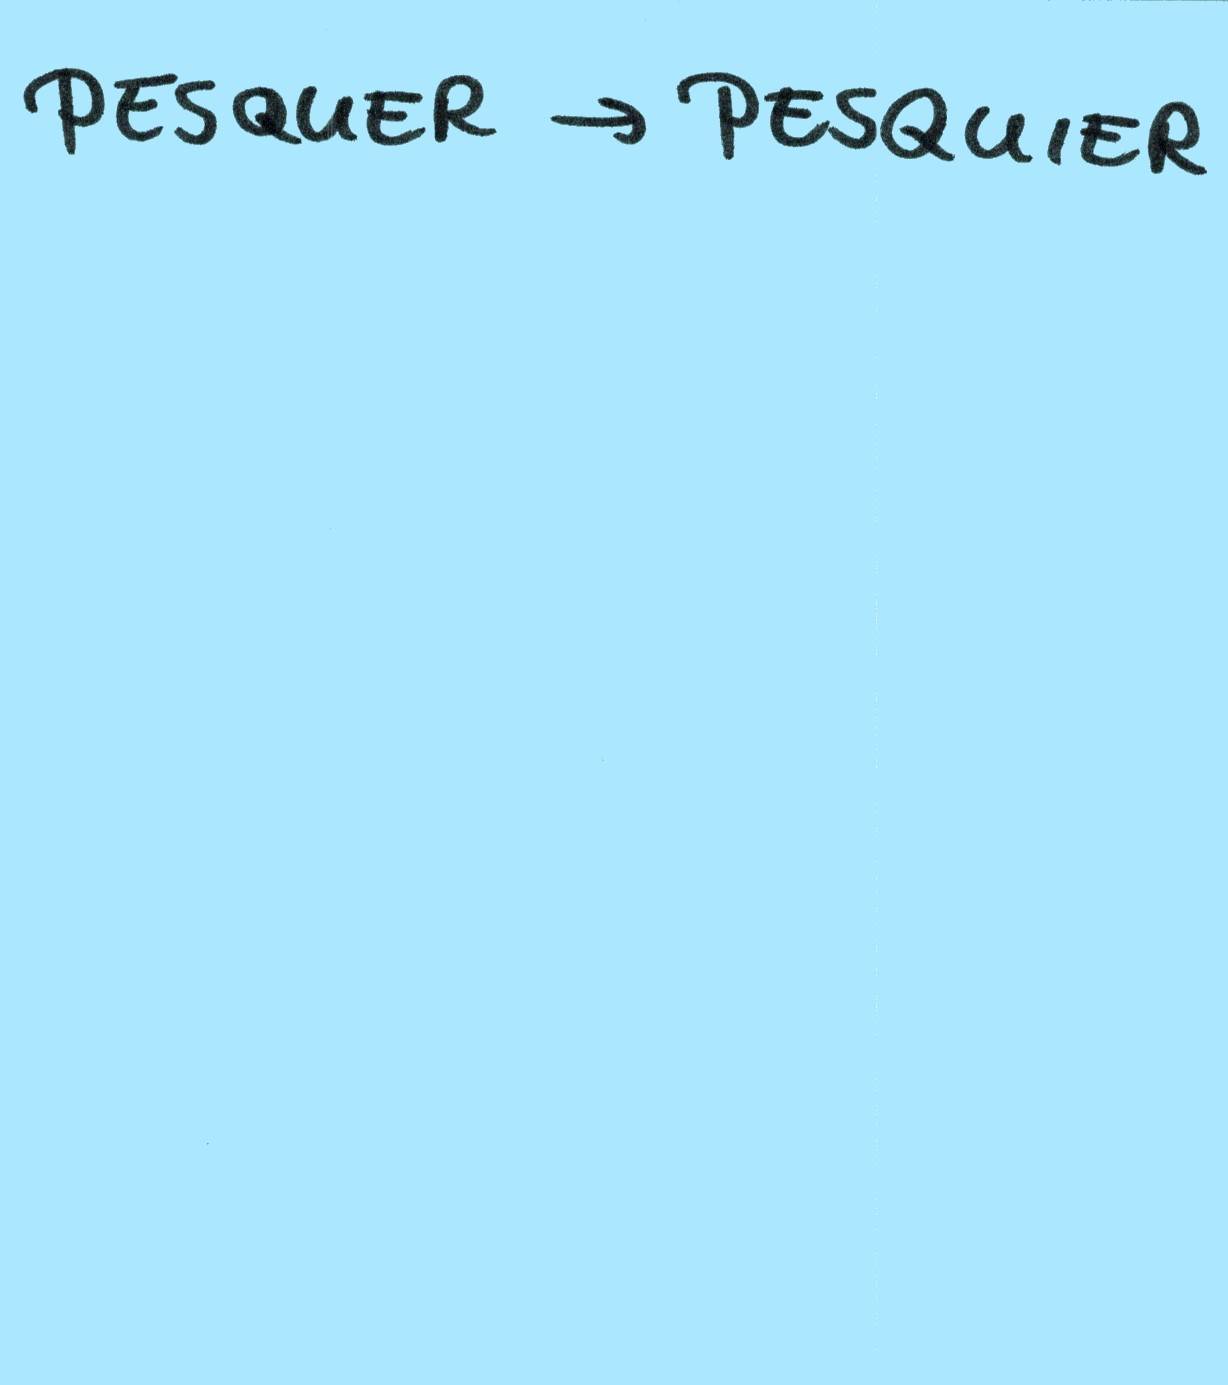 PESQUER → PESQUIER